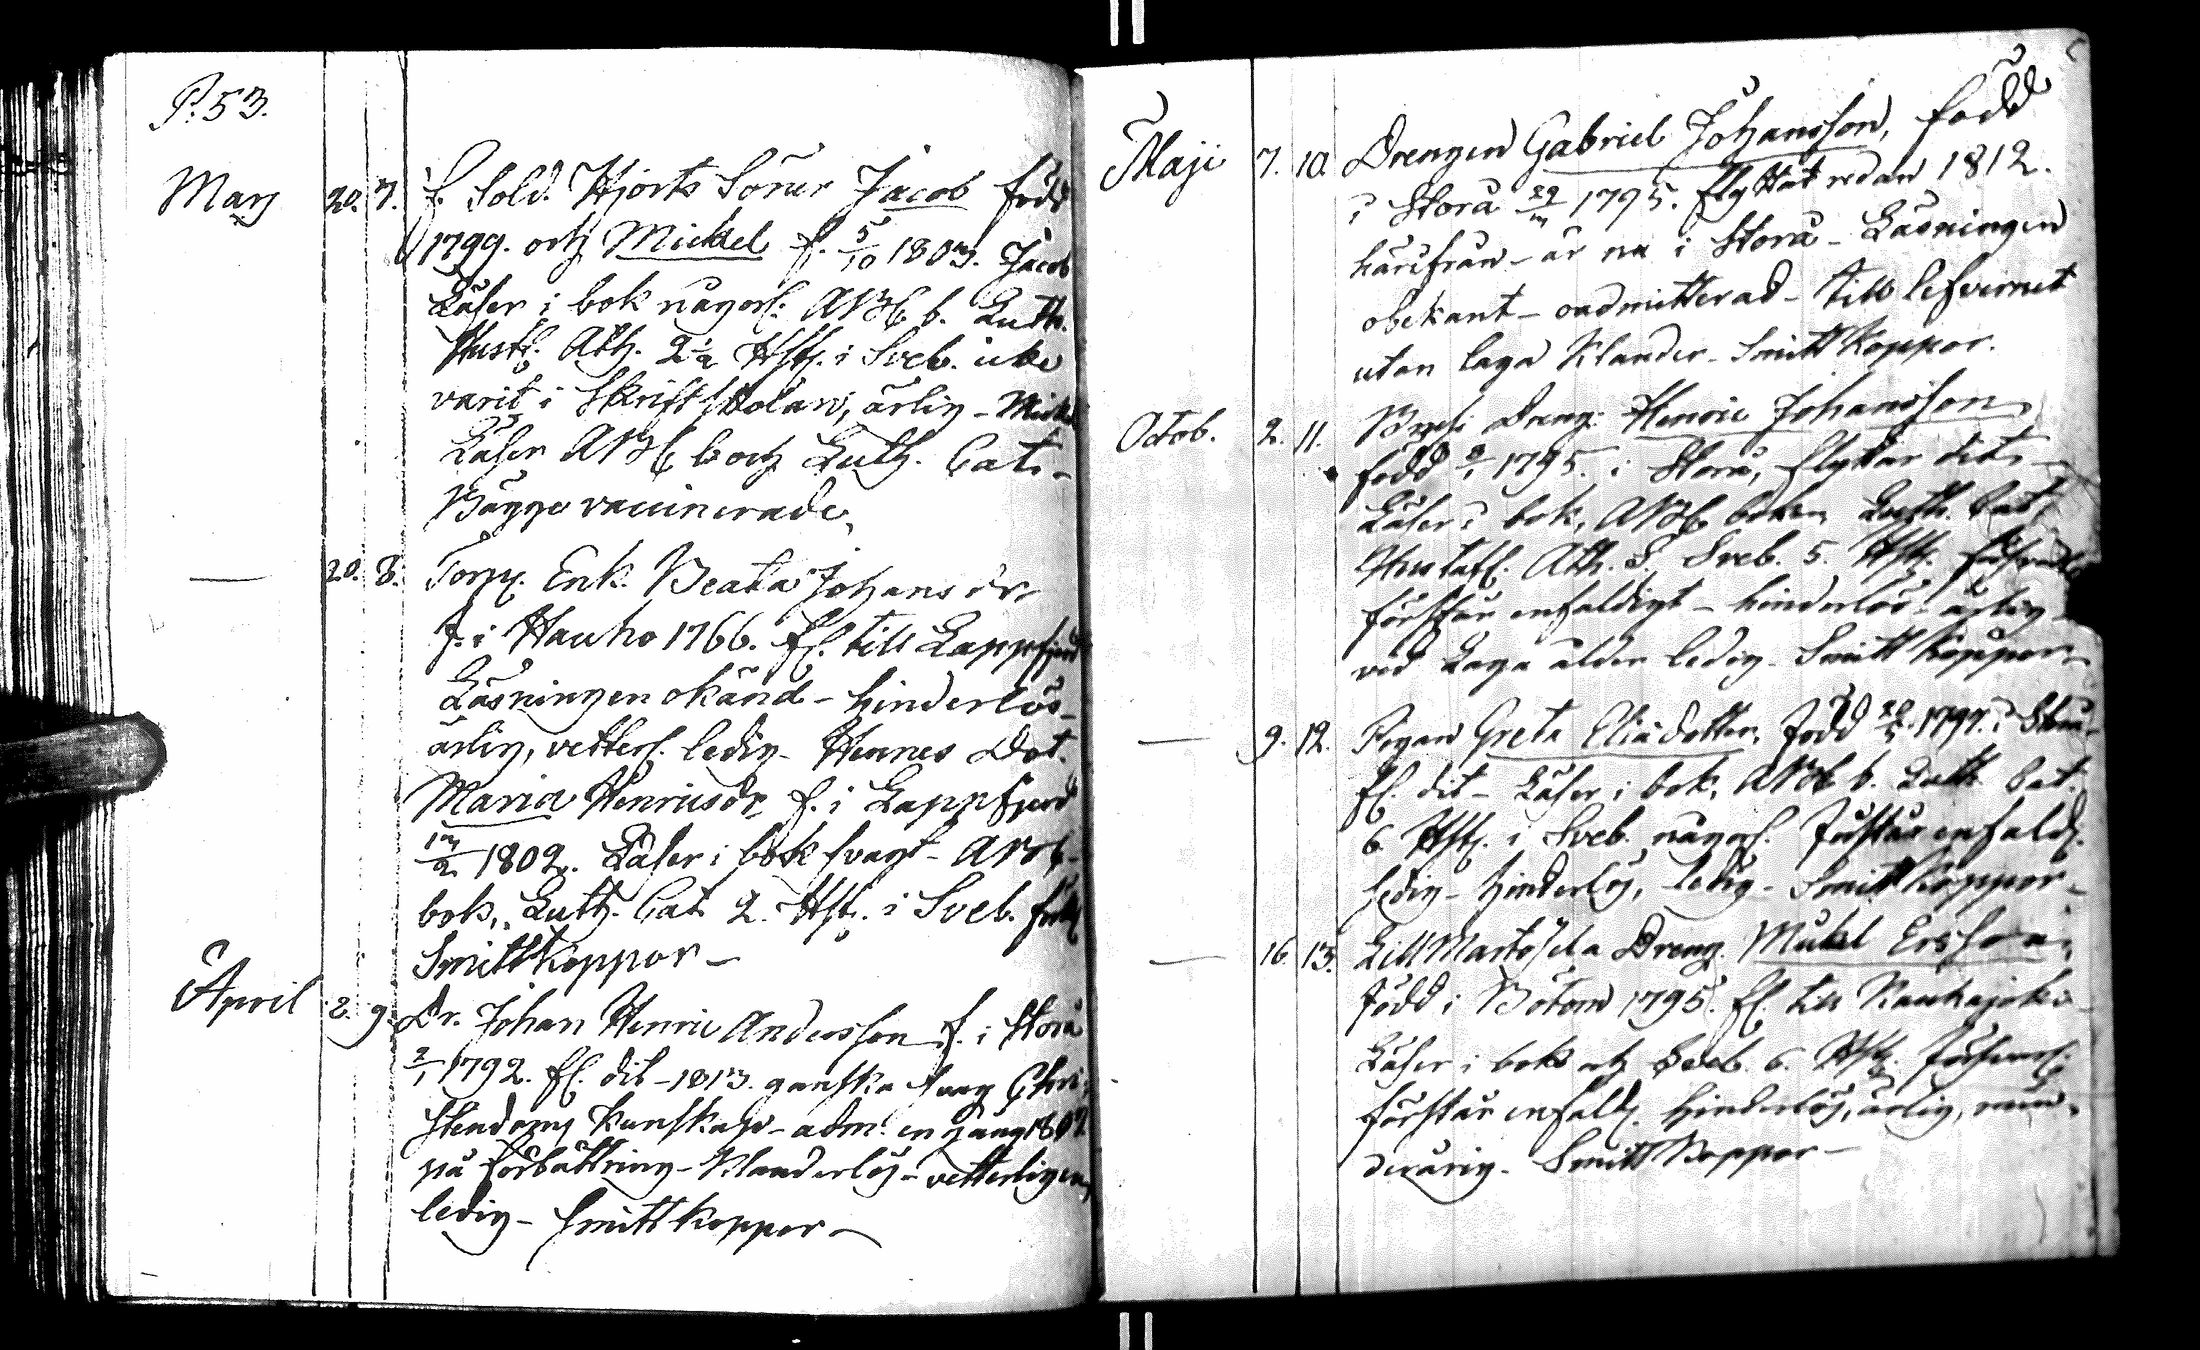 P. 53.
Mars 20. 7. f. Sold. Hjorts Söner Jacob född
1799. och Mickel f. 5/10 1803. Jacob
Läser i bok någorl. ABC b. Luth.
Hustafl. Ath. 2 1/2 Hst. i Sveb. icke
varit i Skriftskolan, ärlig - Mickel
Läser ABC b och Luth. Cat. -
Bägge vaccinerade.
— 20. 8. Torp. Enk. Beata Johansdr
f. i Hauho 1766. fl. till Lappfjerd
Läsningen okänd - hinderlös -
ärlig, vetterl. ledig - Hennes Dot.
Maria Henricsdr, f. i Lappfjerd
13/2 1802. Läser i bok svagt - ABC -
bok, Luth. Cat. 2. Hst. i Sveb.
Smittkoppor -
April 2. 9. Dr. Johan Henric Andersson f. i Storå
2/1 1792. fl. dit - 1813. ganska svag Chri-
stendoms kunskap - adm. en gång
på förbättring - Klanderlös - vetterligen
ledig - Smittkoppor -
Maji 7. 10. Drengen Gabriel Johansson, född
i Storå 1795. flyttat redan 1812.
härifrån - är nu i Storå - Läsningen
obekant - oadmitterad - till lefvernet
utan laga Klander - Smittkoppor.
Octob. 2. 11. Dreng. Henric Johansson,
född 1795. i Storå, flyttar dit -
Läser i bok, ABC boken Luth. Cat.
Hustafl. Ath. S. Sveb. 5. Hst.
förstår enfaldigt - hinderlös - ärlig -
vid Laga ålder ledig - Smittkoppor -
— 9. 12. Pigan Greta Eliædotter, född i Storå
fl. dit - Läser i bok, ABC b. Luth. Cat.
6. Hst. i Sveb. någorl. förstår enfald.
- hinderlös, ledig - Smittkoppor -
— 16. 13. Lill Mårtosela Dreng. Mickel Ersson,
född i Bötom 1795. fl. till Kauhajoki
Läser i bok och Sveb. 6. Hst.
förstår enfald. hinderlös, ärlig, min-
derårig - Smittkoppor -